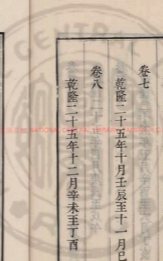 卷七
乾隆二十五年十月壬辰至十一月巳
卷八
乾隆二十五年十二月辛未至丁酉